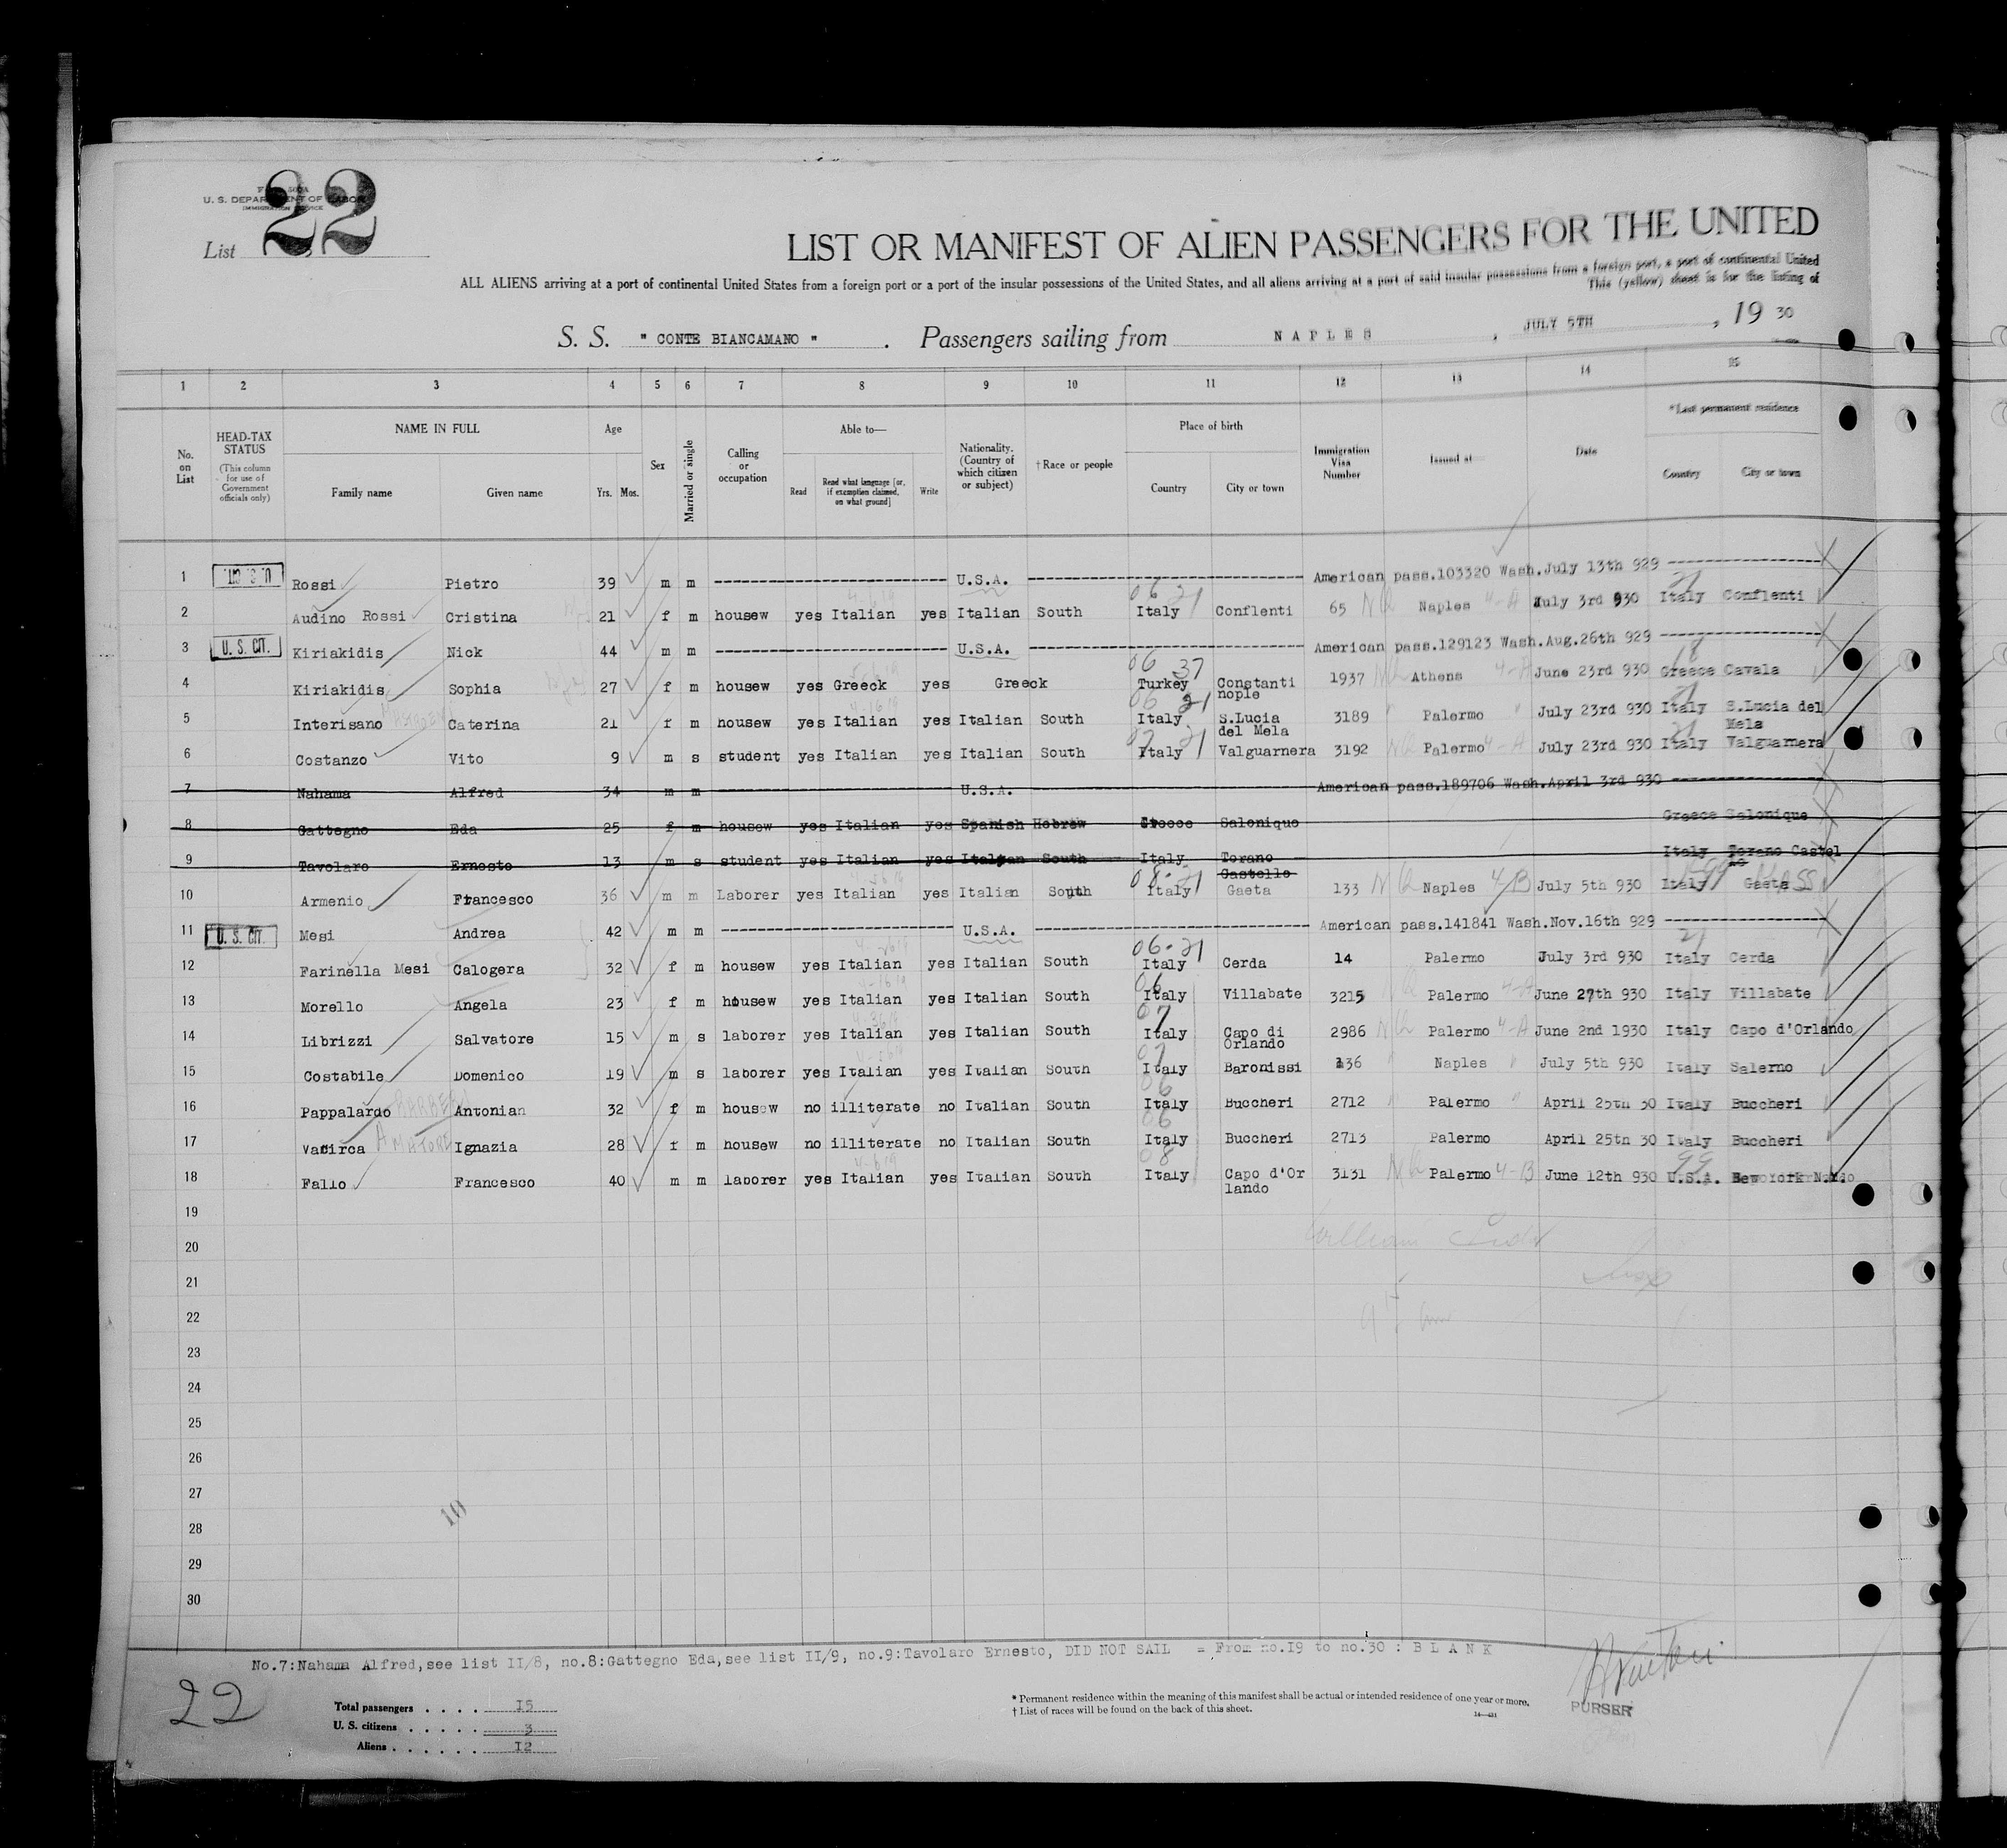 U. S. DEPARTMENT OF LABOR
IMMIGRATION SERVICE
List 22
LIST OR MANIFEST OF ALIEN PASSENGERS FOR THE UNITED
ALL ALIENS arriving at a port of continental United States from a foreign port or a port of the insular possessions of the United States, and all aliens arriving at a port of said insular possessions from a foreign port, a port of continental United
This (yellow) sheet is for the listing of
S. S. " CONTE BIANCAMANO " . Passengers sailing from NAPLES , JULY 5TH , 19 30
1 2 3 4 5 6 7 8 9 10 11 12 13 14 15
No. on List
HEAD-TAX STATUS
(This column for use of Government officials only)
NAME IN FULL
Family name Given name
Age
Yrs. Mos.
Sex
Married or single
Calling or occupation
Able to—
Read
Read what language [or, if exemption claimed, on what ground]
Write
Nationality. (Country of which citizen or subject)
† Race or people
Place of birth
Country City or town
Immigration Visa Number
Issued at
Date
* Last permanent residence
Country City or town
1 Rossi Pietro 39 m m U.S.A. American pass.103320 Wash.July 13th 929
2 Audino Rossi Cristina 21 f m housew yes Italian yes Italian South Italy Conflenti 65 Naples July 3rd 930 Italy Conflenti
3 U. S. CIT. Kiriakidis Nick 44 m m U.S.A. American pass.129123 Wash.Aug.26th 929
4 Kiriakidis Sophia 27 f m housew yes Greeck yes Greeck Turkey Constanti nople 1937 Athens June 23rd 930 Greece Cavala
5 Interisano Caterina 21 f m housew yes Italian yes Italian South Italy S.Lucia del Mela 3189 Palermo July 23rd 930 Italy S.Lucia del Mela
6 Costanzo Vito 9 m s student yes Italian yes Italian South Italy Valguarnera 3192 Palermo 4-A July 23rd 930 Italy Valguarnera
7 Nahama Alfred 34 m m U.S.A. American pass.189706 Wash.April 3rd 930
8 Gattegno Eda 25 f m housew yes Italian yes Spanish Hebrew Greece Salonique Greece Salonique
9 Tavolaro Ernesto 13 m s student yes Italian yes Italian South Italy Torano Castello Italy Torano Castel
10 Armenio Francesco 36 m m Laborer yes Italian yes Italian South Italy Gaeta 133 Naples 4/B July 5th 930 Italy Gaeta
11 U. S. CIT. Mesi Andrea 42 m m U.S.A. American pass.141841 Wash.Nov.16th 929
12 Farinella Mesi Calogera 32 f m housew yes Italian yes Italian South Italy Cerda 14 Palermo July 3rd 930 Italy Cerda
13 Morello Angela 23 f m housew yes Italian yes Italian South Italy Villabate 3215 Palermo 4-A June 27th 930 Italy Villabate
14 Librizzi Salvatore 15 m s laborer yes Italian yes Italian South Italy Capo di Orlando 2986 Palermo 4-A June 2nd 1930 Italy Capo d'Orlando
15 Costabile Domenico 19 m s laborer yes Italian yes Italian South Italy Baronissi 136 Naples July 5th 930 Italy Salerno
16 Pappalardo Antonian 32 f m housew no illiterate no Italian South Italy Buccheri 2712 Palermo April 25th 30 Italy Buccheri
17 Vacirca AMATORE Ignazia 28 f m housew no illiterate no Italian South Italy Buccheri 2713 Palermo April 25th 30 Italy Buccheri
18 Fallo Francesco 40 m m laborer yes Italian yes Italian South Italy Capo d'Or lando 3131 Palermo 4-B June 12th 930 U.S.A.
19
20
21
22
23
24
25
26
27
28
29
30
10
No.7:Nahama Alfred,see list II/8, no.8:Gattegno Eda,see list II/9, no.9:Tavolaro Ernesto, DID NOT SAIL = From no.19 to no.30 : B L A N K
22
Total passengers . . . . 15
U. S. citizens . . . . . 3
Aliens . . . . . . 12
* Permanent residence within the meaning of this manifest shall be actual or intended residence of one year or more.
† List of races will be found on the back of this sheet.
PURSER